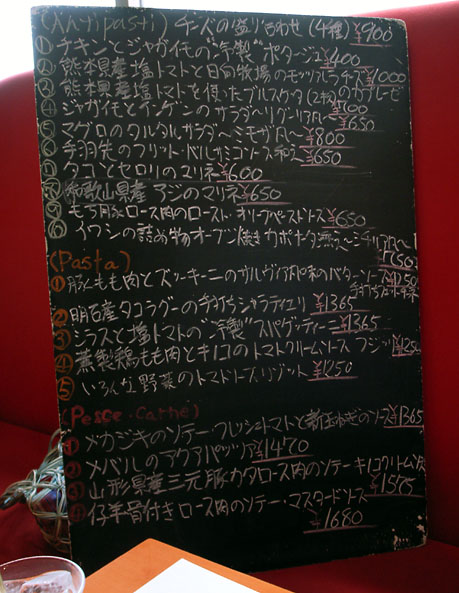 (Antipasti) チーズの盛り合わせ (4種) ¥900
① チキンとジャガイモの"冷製"ポタージュ ¥400
② 熊本県産塩トマトと日向牧場のモッツァレラチーズ ¥1000
のカプレーゼ
③ 熊本県産塩トマトを使ったブルスケッタ(2ヶ) ¥500
④ ジャガイモとインゲンのサラダ〜リグーリア風〜 ¥650
⑤ マグロのタルタルサラダ〜ミモザ風〜 ¥800
⑥ 手羽先のフリット・バルサミコソース和え ¥650
⑦ タコとセロリのマリネ ¥600
⑧ 和歌山県産アジのマリネ ¥650
⑨ もち豚ロース肉のロースト・オリーブペーストソース ¥650
⑩ イワシの詰め物オーブン焼きカポナータ添え〜シチリア風〜
¥750
(Pasta)
① 豚もも肉とズッキーニのサルヴィア風味のバターソース ¥1250
手打ち
② 明石産タコラグーの手打ちシャラティエリ ¥1365
③ シラスと塩トマトの"冷製"スパゲッティーニ ¥1365
④ 燻製鶏もも肉とキノコのトマトクリームソース フジッリ ¥1250
⑤ いろんな野菜のトマトソースリゾット ¥1250
(Pesce・Carne)
① メカジキのソテー・フレッシュトマトと新玉ねぎのソース ¥1365
② メバルのアクアパッツァ ¥1470
③ 山形県産三元豚カタロース肉のソテーキノコクリームソース
¥1575
④ 仔羊骨付きロース肉のソテー・マスタードソース
¥1680